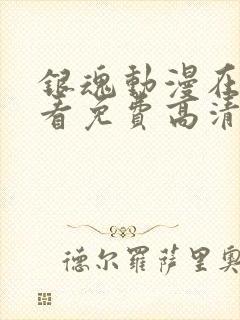 銀魂動漫在
看免費高清
德尔羅萨里奥